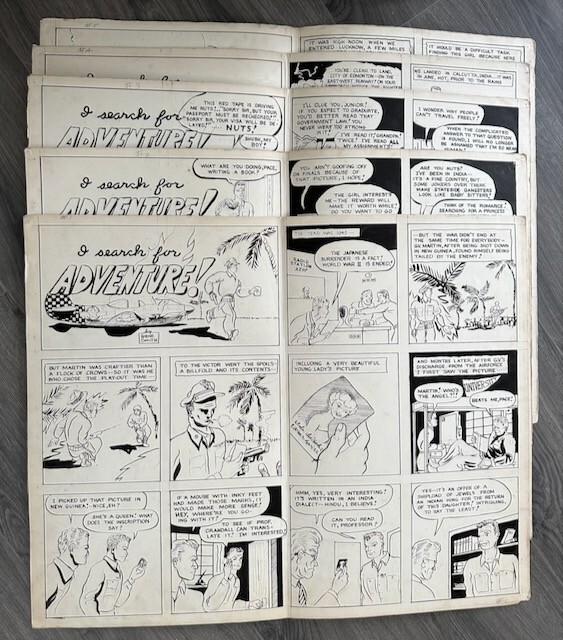 IT WAS HIGH NOON WHEN WE
ENTERED LUCKNOW, A FEW MILES
IT WOULD BE A DIFFICULT TASK
FINDING THIS GIRL BECAUSE HERE
YOU'RE CLEAR TO LAND,
CITY OF EDMONTON - ON THE
EAST-WEST RUNWAY! ON YOUR
WE LANDED IN CALCUTTA, INDIA - IT WAS
IN JUNE, HOT, PRIOR TO THE RAINS
I search for
ADVENTURE!
THIS RED TAPE IS DRIVING
ME NUTS!
SORRY SIR, BUT YOUR
PASSPORT MUST BE RECHECKED!
SORRY SIR, YOUR VISA WILL BE DE-
LAYED!
NUTS!
I'LL CLUE YOU, JUNIOR!
IF YOU EXPECT TO GRADUATE,
YOU'D BETTER READ THAT
GOVERNMENT LAW! YOU
NEVER WERE TOO STRONG
IN IT!
I'VE READ IT, GRANDPA!
TWICE! I'VE READ ALL
MY ASSIGNMENTS!
I WONDER WHY PEOPLE
CAN'T TRAVEL FREELY?
WHEN THE COMPLICATED
ANSWER TO THAT QUESTION
IS FOUND, I WILL NO LONGER
BE ASHAMED THAT I'M SO
I search for
ADVENTURE!
WHAT ARE YOU DOING, PACE,
WRITING A BOOK?
YOU AIN'T GOOFING OFF
ON FINALS BECAUSE OF
THAT PICTURE, I HOPE!
THE GIRL INTERESTS
ME - THE REWARD WILL
MAKE IT WORTH WHILE!
DO YOU WANT TO GO
ARE YOU NUTS!
I'VE BEEN IN INDIA -
IT'S A FINE COUNTRY, BUT
SOME JOKERS OVER THERE
MAKE STATESIDE GANGSTERS
LOOK LIKE BABY SITTERS!
THINK OF THE ROMANCE!
SEARCHING FOR A PRINCESS
I search for
ADVENTURE!
THE YEAR WAS 1945 -
RADIO
STATION
THE JAPANESE
SURRENDER IS A FACT!
WORLD WAR II IS ENDED!
- BUT THE WAR DIDN'T END AT
THE SAME TIME FOR EVERYBODY -
GY. MARTIN, AFTER BEING SHOT DOWN
IN NEW GUINEA, FOUND HIMSELF BEING
TAILED BY THE ENEMY!
BUT MARTIN WAS CRAFTIER THAN
A FLOCK OF CROWS - SO IT WAS HE
WHO CHOSE THE PLAY-OUT TIME -
TO THE VICTOR WENT THE SPOILS -
A BILLFOLD AND ITS CONTENTS -
INCLUDING A VERY BEAUTIFUL
YOUNG LADY'S PICTURE
AND MONTHS LATER, AFTER GY'S
DISCHARGE FROM THE AIRFORCE
I FIRST SAW THE PICTURE
MARTIN! WHO'S
THE ANGEL?!
BEATS ME, PACE!
I PICKED UP THAT PICTURE IN
NEW GUINEA! - NICE, EH?
SHE'S A QUEEN! WHAT
DOES THE INSCRIPTION
SAY?
IF A MOUSE WITH INKY FEET
HAD MADE THOSE MARKS, IT
WOULD MAKE MORE SENSE!
HEY, WHERE'RE YOU GO-
ING WITH IT?
TO SEE IF PROF.
CRANDALL CAN TRANS-
LATE IT! I'M INTERESTED!
HMM, YES, VERY INTERESTING!
IT'S WRITTEN IN AN INDIA
DIALECT - HINDU, I BELIEVE!
CAN YOU READ
IT, PROFESSOR?
YES - IT'S AN OFFER OF A
SHIPLOAD OF JEWELS FROM
AN INDIAN KING FOR THE RETURN
OF THIS DAUGHTER! INTRIGUING,
TO SAY THE LEAST!